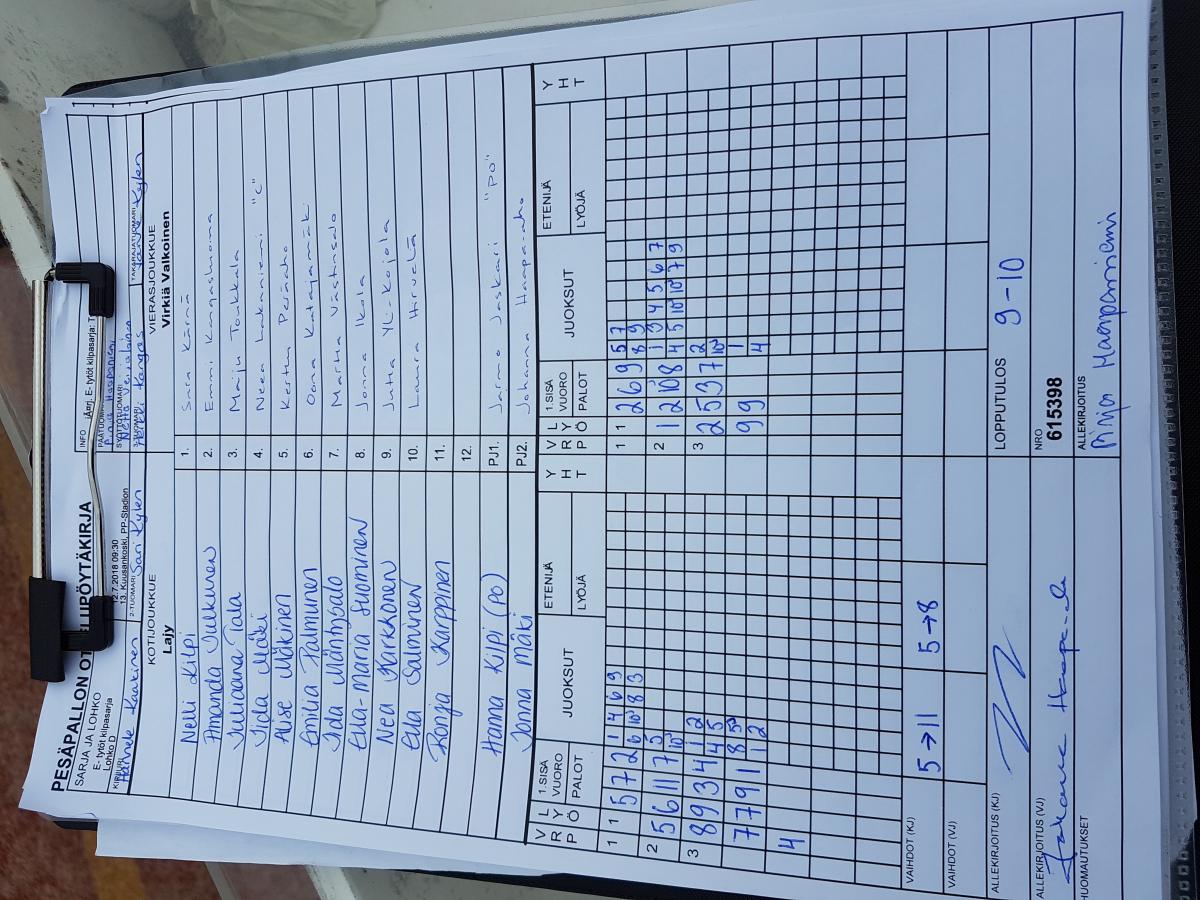 PESÄPALLON OTTELUPÖYTÄKIRJA
SARJA JA LOHKO
E- tytöt kilpasarja
Lohko D
12.7.2018 09:30
13. Kuusankoski, PP-Stadion
KIRJURI
Hannele Kaakinen
2-TUOMARI
Sari Kylen
INFO
E- tytöt kilpasarja: T
PÄÄTUOM
SYÖTTÖTUOMARI
3-TUOMARI
Heikki Kangas
TAKARAJATUOMARI
Janne Kylen
KOTIJOUKKUE
Lajy
VIERASJOUKKUE
Virkiä Valkoinen
Nelli Kilpi 1. Sara Kärnä
Amanda Julkunen 2. Emmi Kangasluoma
Juliaana Tala 3. Maiju Toukkala
Iida Mäki 4. Neea Lakaniemi "C"
Alise Mäkinen 5. Kerttu Peräaho
Emilia Palmunen 6. Oona Katajamäki
Iida Mäntysalo 7. Martta Västinsalo
Eva-Maria Suominen 8. Jonna Ikola
Nea Karkkonen 9. Jutta Yli-Kojola
Ella Salminen 10. Laura Harvela
Ronja Karppinen 11.
12.
Hanna Kilpi (PO) PJ1. Jarmo Jaskari "PO"
Jonna Mäki PJ2. Johanna Haapa-aho
V R P L Y Ö 1.SISÄ VUORO PALOT JUOKSUT ETENIJÄ LYÖJÄ Y H T V R P L Y Ö 1.SISÄ VUORO PALOT JUOKSUT ETENIJÄ LYÖJÄ Y H T
1 1 5 7 2 1 4 6 9 1 1 2 6 9 5 7
6 10 8 3 8 9
2 5 6 11 7 5 2 1 2 10 8 1 3 4 5 6 7
10 4 5 10 10 7 9
3 8 9 3 4 1 2 3 2 5 3 7 2
4 5 10
7 7 9 1 1 5 9 9 1
8 2 4
4
VAIHDOT (KJ) 5→11 5→8
VAIHDOT (VJ)
ALLEKIRJOITUS (KJ)
LOPPUTULOS 9-10
ALLEKIRJOITUS (VJ)
NRO
615398
HUOMAUTUKSET
ALLEKIRJOITUS
Pinja Haapaniemi